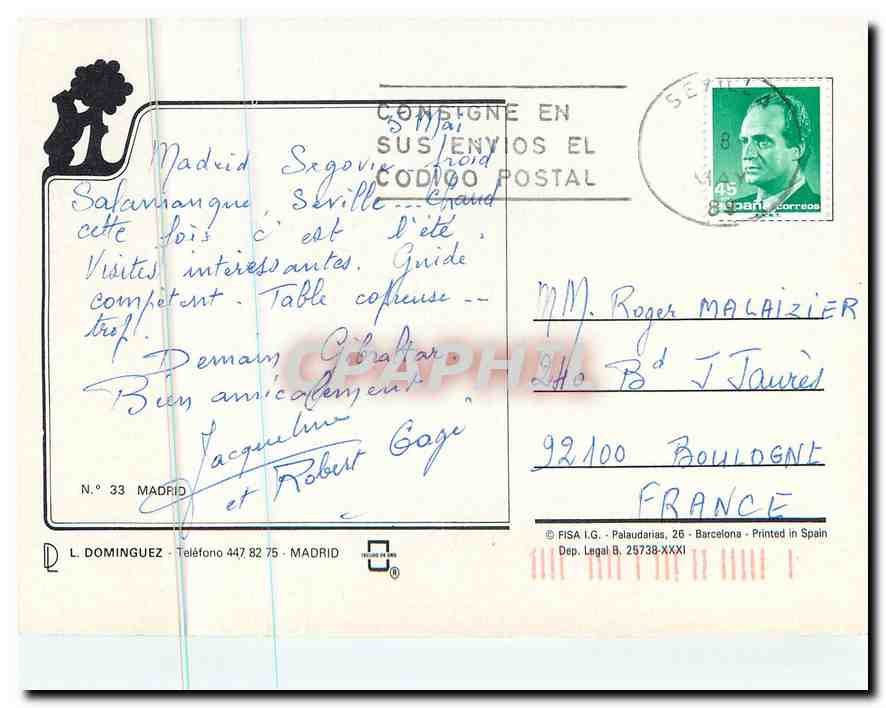 CONSIGNE EN
SUS ENVIOS EL
CODIGO POSTAL
SEVILLA
8
MAY
45
españa correos
5 Mai
Madrid Segovie - froid
Salamanque, Séville --- chaud
cette fois c'est l'été.
Visites intéressantes. Guide
compétent. Table copieuse --
trop!
Demain Gibraltar.
Bien amicalement
Jacqueline
et Robert Gagé
MM. Roger MALAIZIER
240 Bd J Jaurès
92100 BOULOGNE
FRANCE
CPAPHIL
N.º 33 MADRID
L. DOMINGUEZ - Teléfono 447 82 75 - MADRID
© FISA I.G. - Palaudarias, 26 - Barcelona - Printed in Spain
Dep. Legal B. 25738-XXXI